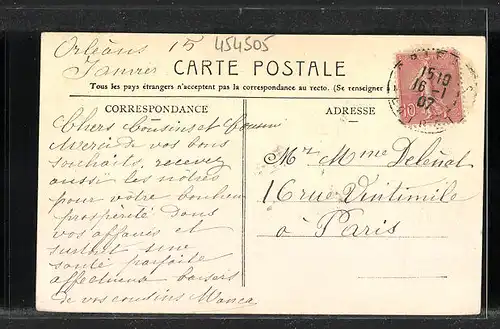 Orléans 15
454505
Janvier
CARTE POSTALE
Tous les pays étrangers n'acceptent pas la correspondance au recto. (Se renseigner
CORRESPONDANCE
ADRESSE
1510
16-1
07
10
Chers Cousins et Cousine
Merci de vos bons
souhaits, recevez
aussi les nôtres
pour votre bonheur
prospérité dans
vos affaires et
surtout une
santé parfaite
affectueux baisers
de vos cousins
Mr & Mme Delénat
16 rue Vintimile
à Paris